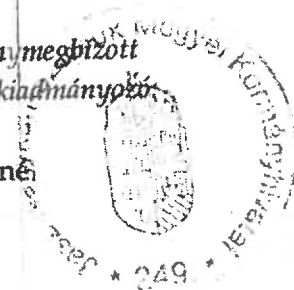 megbízott
kiadmányozó
né
Jász
Megyei Kormányhivatal
* 249 *